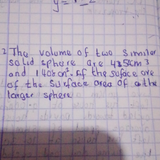 y =
2 The volume of two similar
solid sphere are 485cm3
and 140cm3. If the suface are
of the surface area of a the
larger sphere